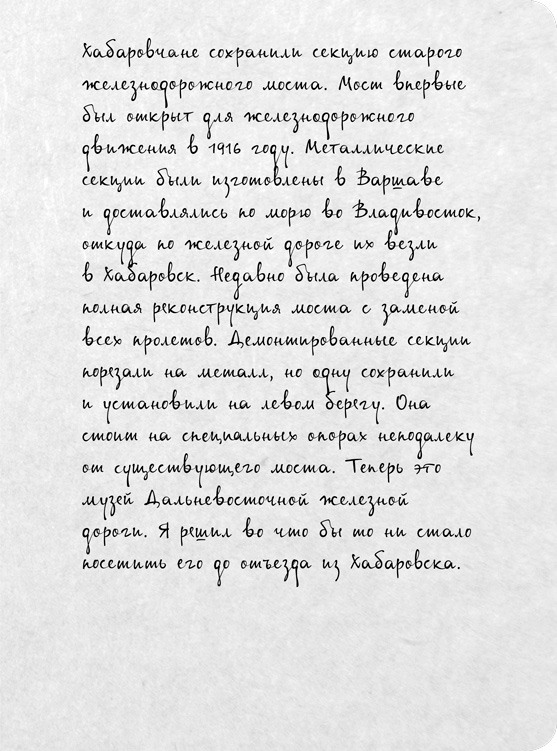 Хабаровчане сохранили секцию старого
железнодорожного моста. Мост впервые
был открыт для железнодорожного
движения в 1916 году. Металлические
секции были изготовлены в Варшаве
и доставлялись по морю во Владивосток,
откуда по железной дороге их везли
в Хабаровск. Недавно была проведена
полная реконструкция моста с заменой
всех пролетов. Демонтированные секции
порезали на металл, но одну сохранили
и установили на левом берегу. Она
стоит на специальных опорах неподалеку
от существующего моста. Теперь это
музей Дальневосточной железной
дороги. Я решил во что бы то ни стало
посетить его до отъезда из Хабаровска.